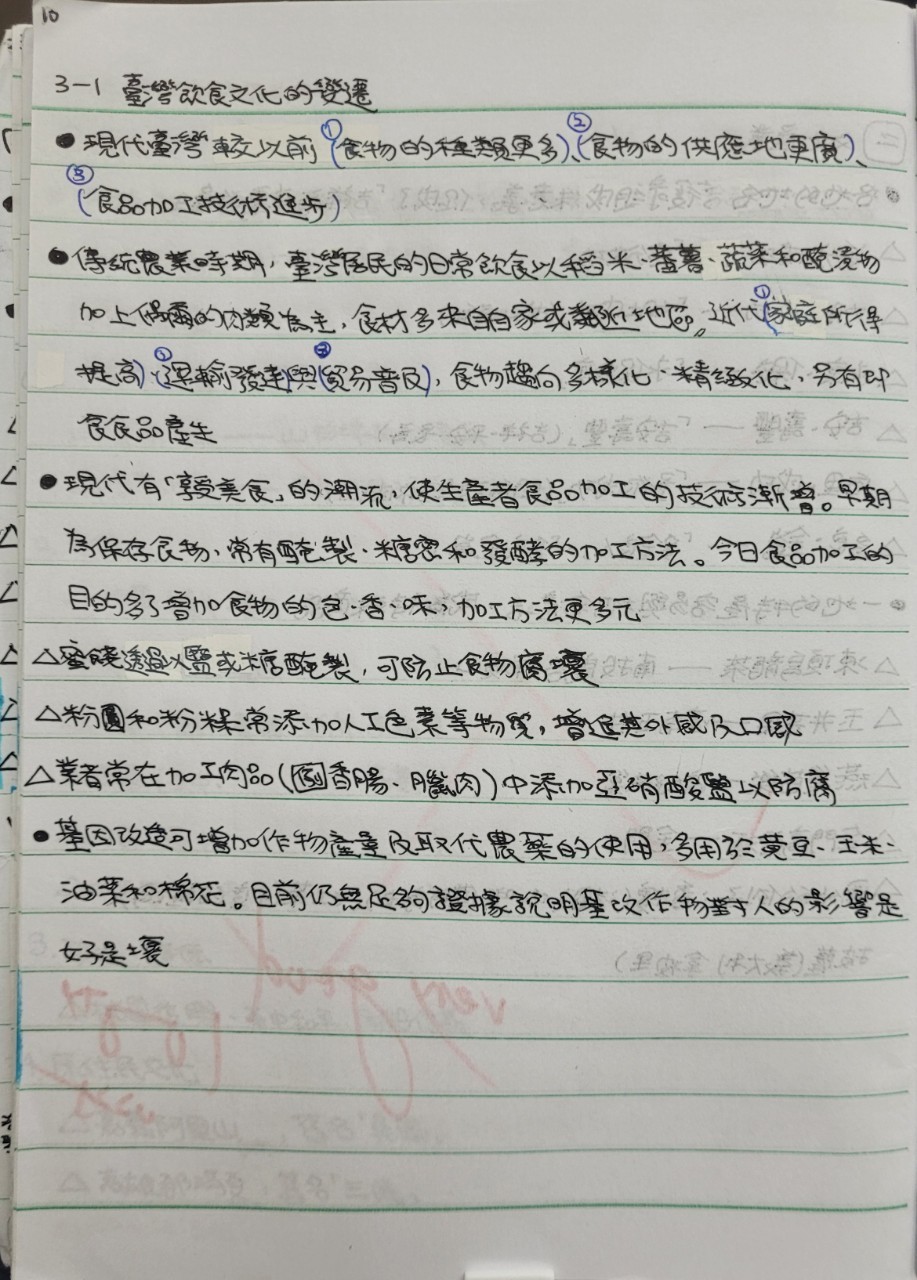 10
3-1 臺灣飲食文化的變遷
● 現代臺灣較以前①(食物的種類更多)、②(食物的供應地更廣)、
③(食品加工技術進步)
● 傳統農業時期,臺灣居民的日常飲食以稻米、蕃薯、蔬菜和醃漬物
加上偶爾的肉類為主,食材多來自自家或鄰近地區。近代①(家庭所得
提高)、②(運輸發達)與③(貿易普及),食物趨向多樣化、精緻化、另有即
食食品產生
● 現代有「享受美食」的潮流,使生產者食品加工的技術漸增。早期
為保存食物,常有醃製、糖密和發酵的加工方法。今日食品加工的
目的多了增加食物的色、香、味,加工方法更多元
△蜜餞透過以鹽或糖醃製,可防止食物腐壞
△粉圓和粉粿常添加人工色素等物質,增進其外感及口感
△業者常在加工肉品(如香腸、臘肉)中添加亞硝酸鹽以防腐
● 基因改造可增加作物產量及取代農藥的使用,多用於黃豆、玉米、
油菜和棉花。目前仍無足夠證據說明基改作物對人的影響是
好是壞